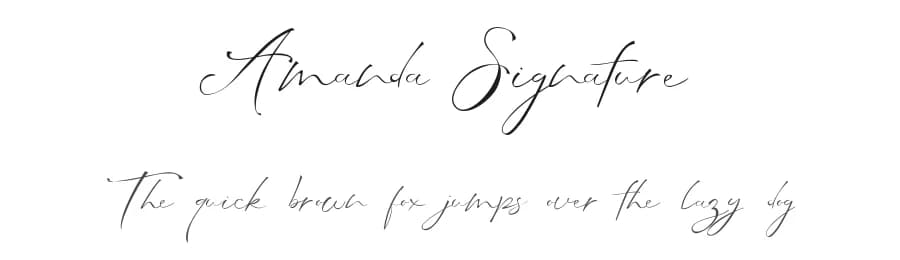 Amanda Signature
The quick brown fox jumps over the lazy dog